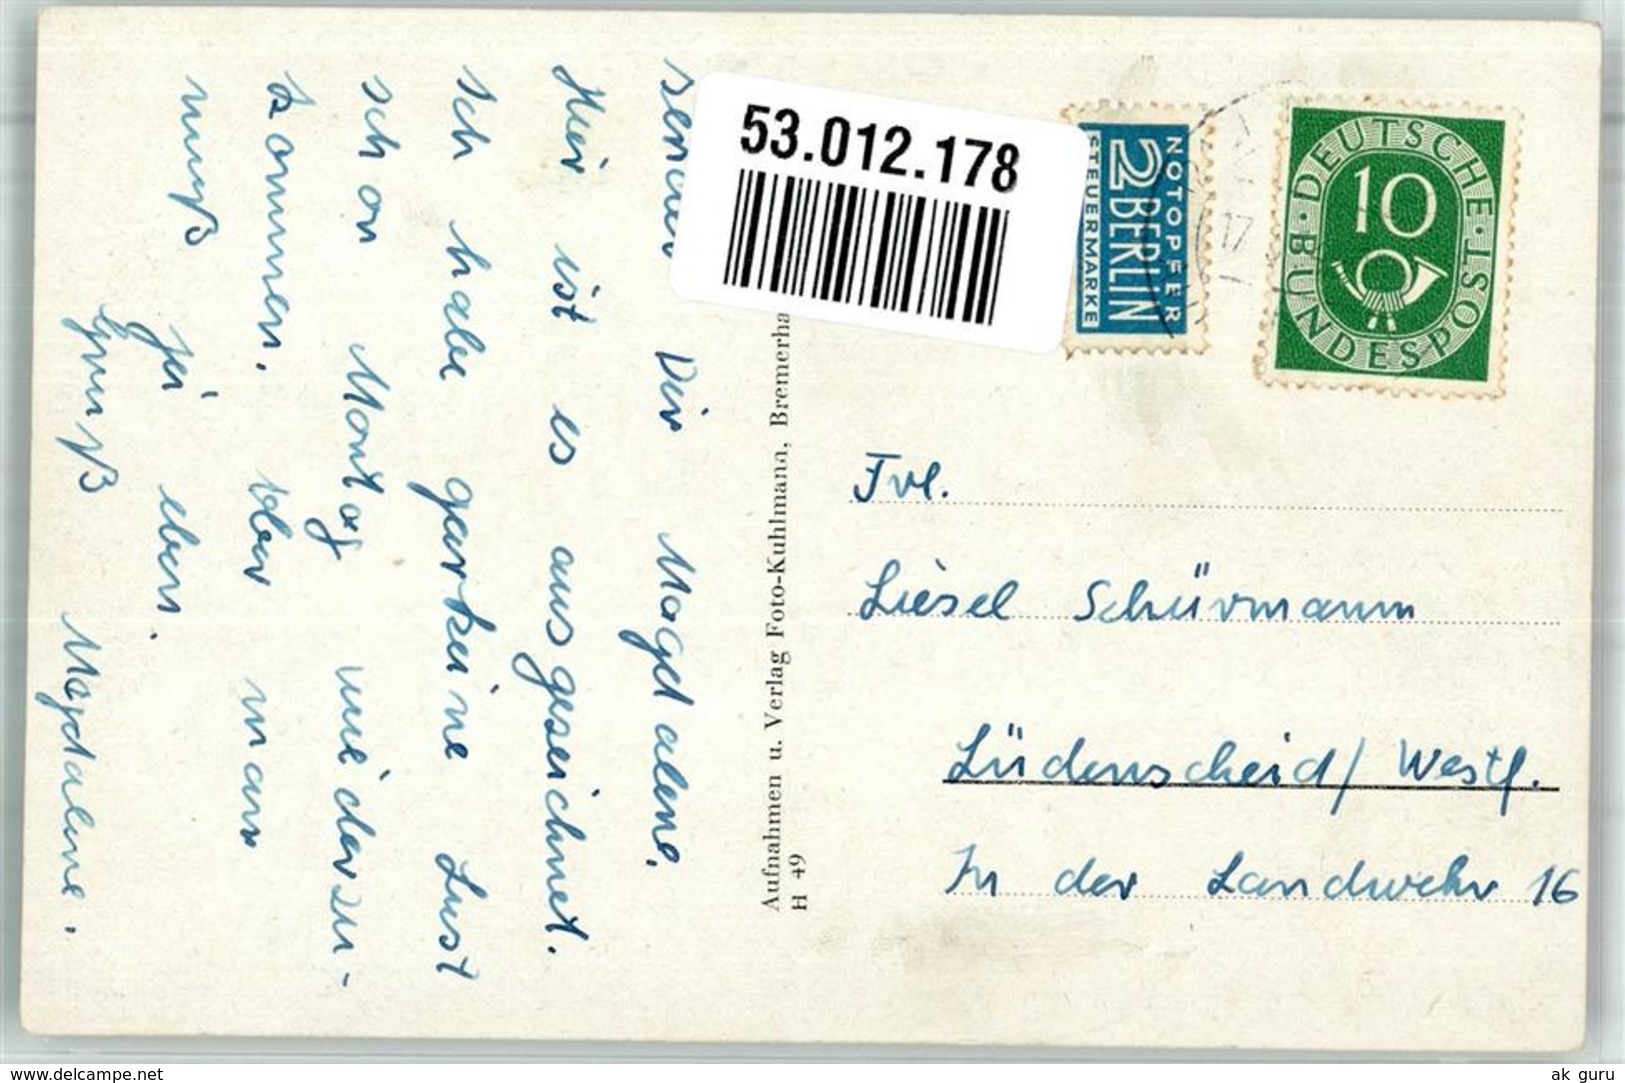 53.012.178
NOTOPFER
2 BERLIN
STEUERMARKE
17
DEUTSCHE BUNDESPOST
10
Dir Magdalene.
Hier ist es ausgeseichnet.
Ich habe garkeine Lust
schon Montag wiederzu-
kommen. Aber man
muß ja eben.
Gruß Magdalene.
Aufnahmen u. Verlag Foto-Kuhlmann, Bremerha
H 49
Frl.
Liesel Schürmann
Lüdenscheid/Westf.
In der Landwehr 16
www.delcampe.net
ak_guru